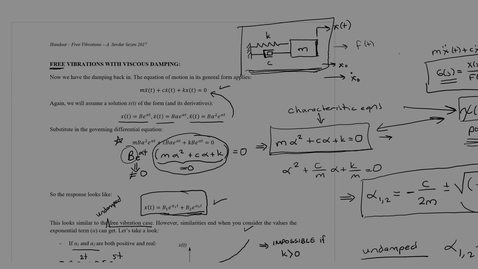 Handout – Free Vibrations – A. Serdar Sezen 2017
FREE VIBRATIONS WITH VISCOUS DAMPING:
Now we have the damping back in. The equation of motion in its general form applies:
mẍ(t) + cẋ(t) + kx(t) = 0
Again, we will assume a solution x(t) of the form (and its derivatives):
x(t) = Be^{αt}, ẋ(t) = Bαe^{αt}, ẍ(t) = Bα²e^{αt}
Substitute in the governing differential equation:
mBα²e^{αt} + cBαe^{αt} + kBe^{αt} = 0
Be^{αt} (mα² + cα + k) = 0
≠ 0
= 0
So the response looks like:
undamped
x(t) = B₁e^{α₁t} + B₂e^{α₂t}
This looks similar to the free vibration case. However, similarities end when you consider the values the
exponential term (α) can get. Let's take a look:
- If α₁ and α₂ are both positive and real:
2t 5t
x(t)
k
m
c
x(t)
f(t)
x₀
ẋ₀
characteristic eqns
⇒ mα² + cα + k = 0
α² + c/m α + k/m = 0
⇒ IMPOSSIBLE if
k>0
mẍ(t) + cẋ(
G(s) = X(s
F(
⇒ α₁,₂ = - c/2m ± √(
undamped α₁,₂